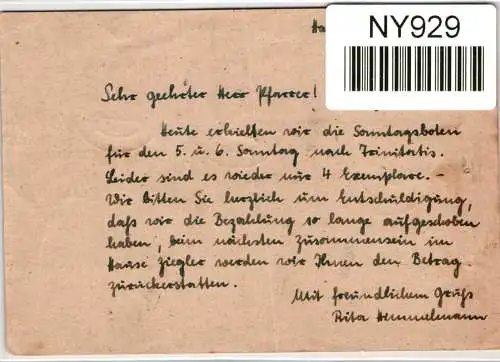 NY929
Ha
Sehr geehrter Herr Pfarrer!
Heute erhielten wir die Sonntagsboten
für den 5. u. 6. Sonntag nach Trinitatis.
Leider sind es wieder nur 4 Exemplare. –
Wir bitten Sie herzlich um Entschuldigung,
daß wir die Bezahlung so lange aufgeschoben
haben; beim nächsten Zusammensein im
Hause Ziegler werden wir Ihnen den Betrag
zurückerstatten.
Mit freundlichem Gruß
Rita Hemmelmann